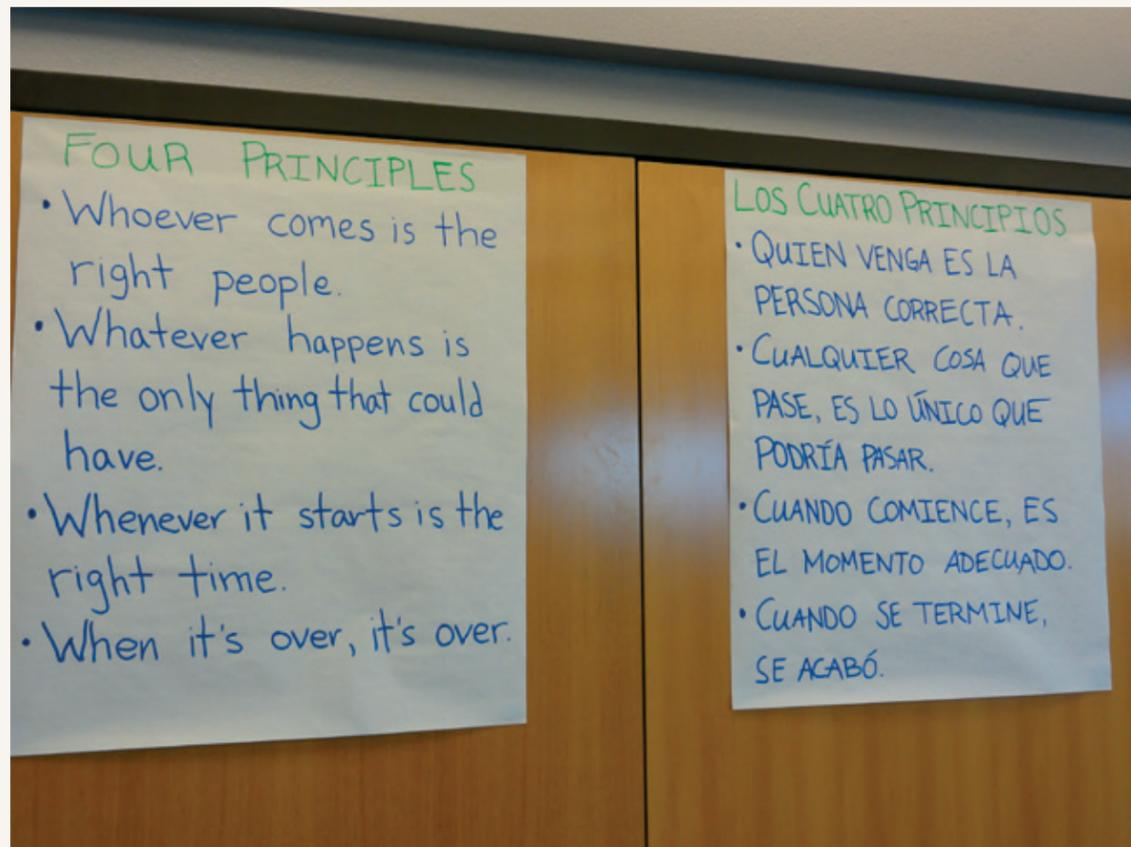 FOUR PRINCIPLES
• Whoever comes is the
right people.
• Whatever happens is
the only thing that could
have.
• Whenever it starts is the
right time.
• When it's over, it's over.
LOS CUATRO PRINCIPIOS
• QUIEN VENGA ES LA
PERSONA CORRECTA.
• CUALQUIER COSA QUE
PASE, ES LO ÚNICO QUE
PODRÍA PASAR.
• CUANDO COMIENCE, ES
EL MOMENTO ADECUADO.
• CUANDO SE TERMINE,
SE ACABÓ.